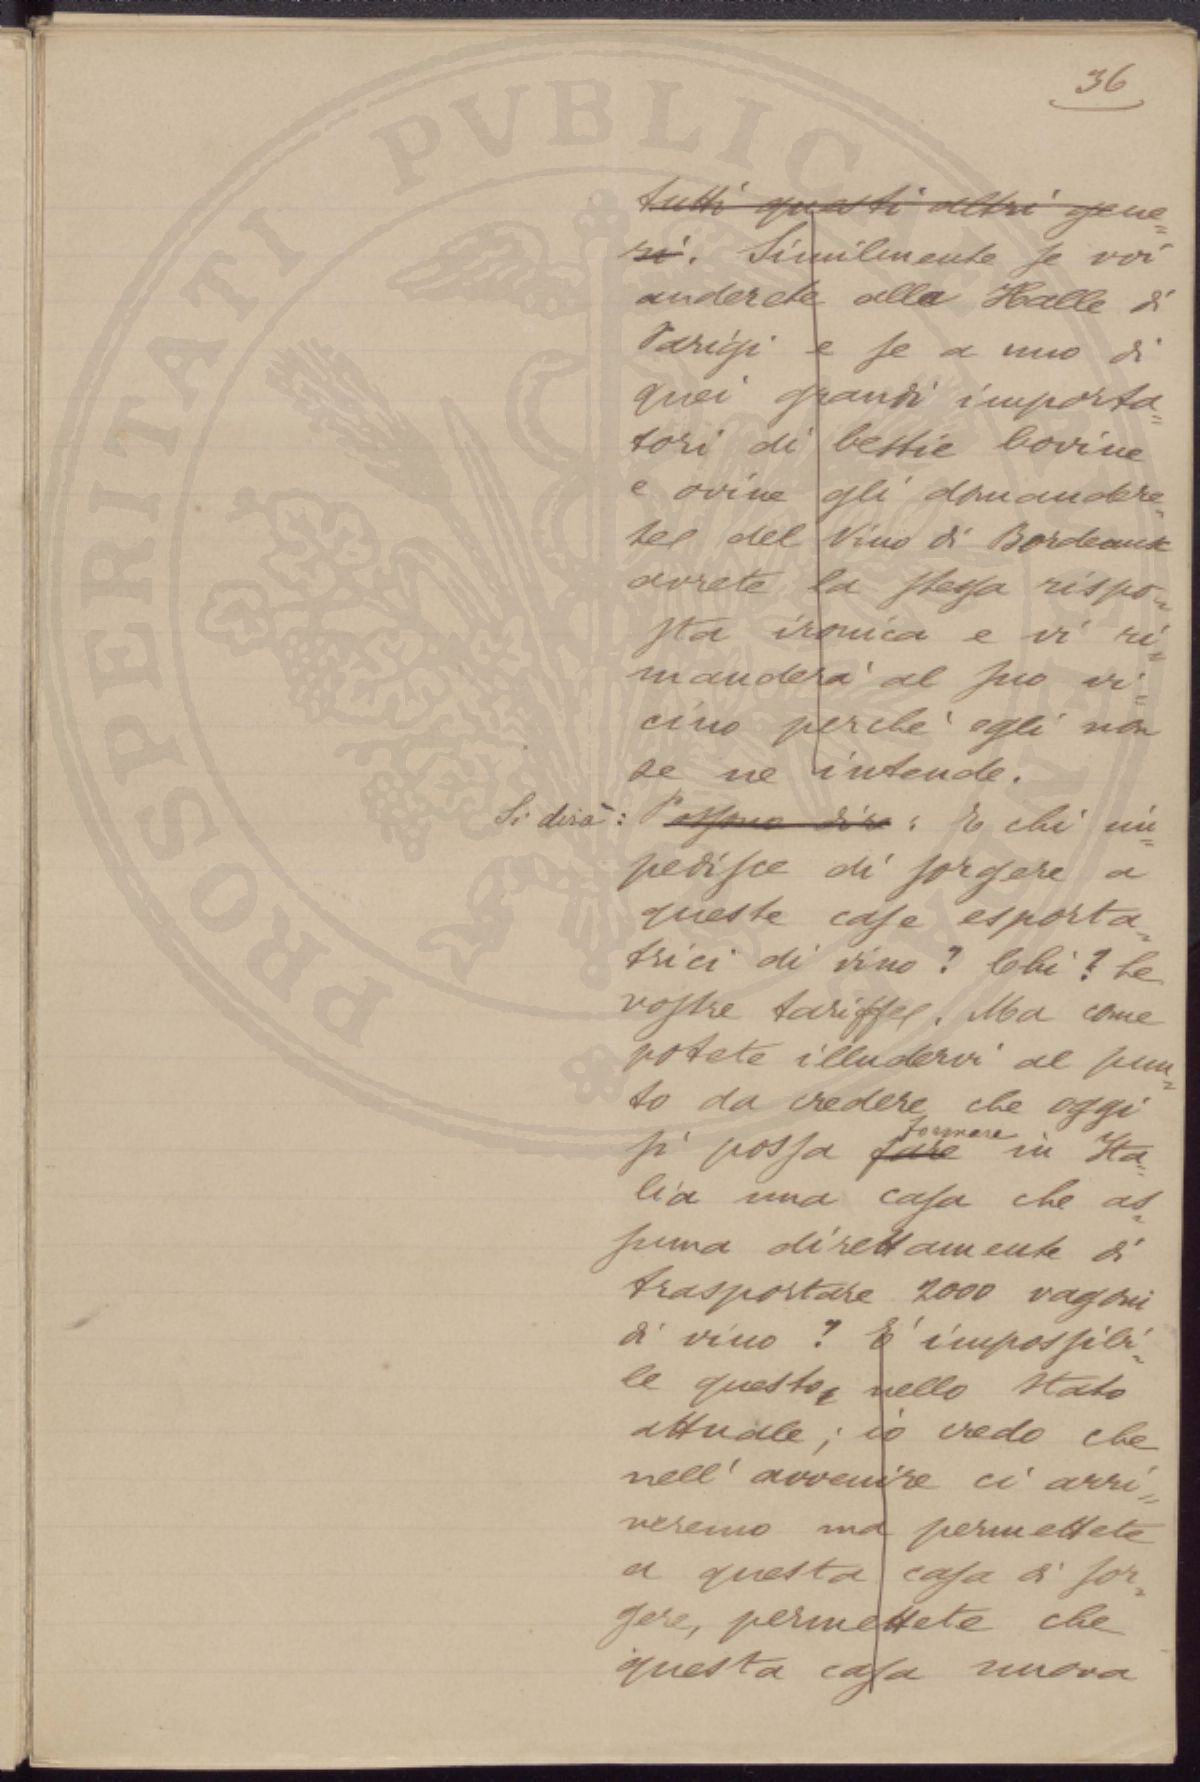 36
tutti questi altri gene=
ri. Similmente se voi
anderete alla Halle di
Parigi e se a uno di
quei grandi importa=
tori di bestie bovine
e ovine gli domandere=
te del Vino di Bordeaux
avrete la stessa rispo=
sta ironica e vi ri=
manderà al suo vi=
cino perchè egli non
se ne intende.
Si dirà: Possono dire: E chi im=
pedisce di sorgere a
queste case esporta=
trici di vino? Chi? Le
vostre tariffe. Ma come
potete illudervi al pun=
to da credere che oggi
formare
si possa fare in Ita=
lia una casa che as=
suma direttamente di
trasportare 2000 vagoni
di vino? È impossibi=
le questo, nello stato
attuale; io credo che
nell'avvenire ci arri=
veremo ma permettete
a questa casa di sor=
gere, permettete che
questa casa nuova
PROSPERITATI PVBLICAE